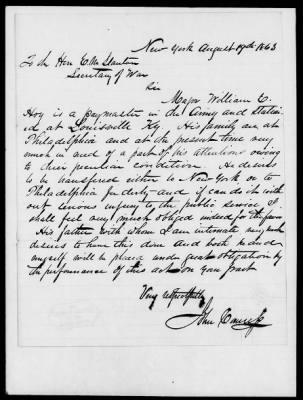 New York August 19th 1863
To the Hon E. M. Stanton
Secretary of War
Sir
Major William C.
is a paymaster in the Army and Station-
ed at Louisville Ky. His family are at
Philadelphia and at the present time very
much in need of a part of his attention owing
to their peculiar condition. He desires
to be transfered either to New York or to
Philadelphia and if can do it with
out serious injury to the public service I
shall feel very much obliged indeed
His father with whom I am intimate very much
desires to have this done and both he and
myself will be placed under great obligation by
the performance of this act on your part
Very respectfully
John